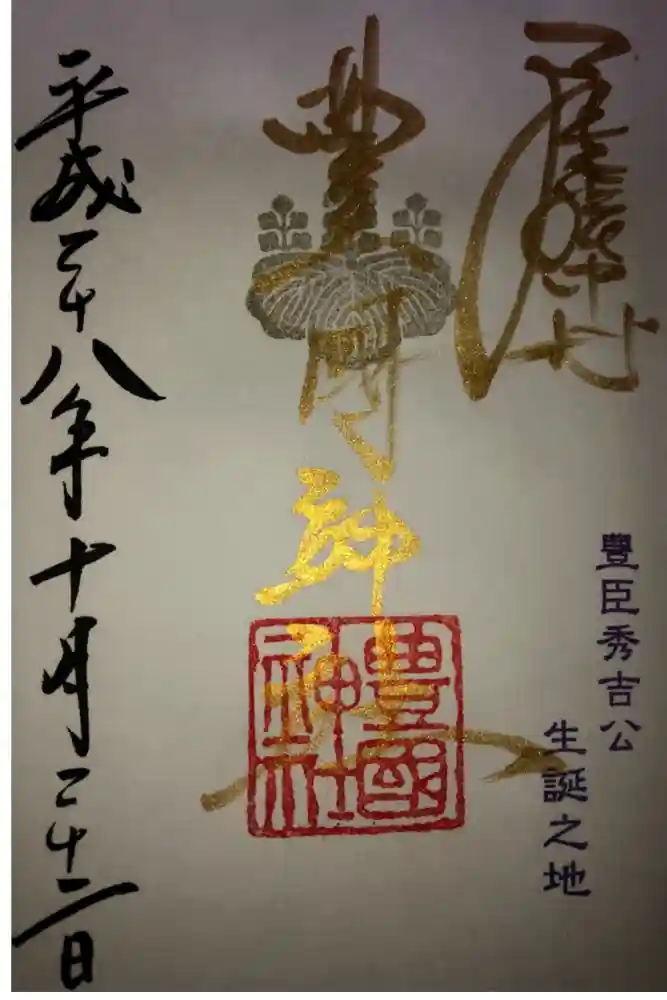 豐臣秀吉公
生誕之地
豊国神社
豊國神社
平成二十八年十月二十二日